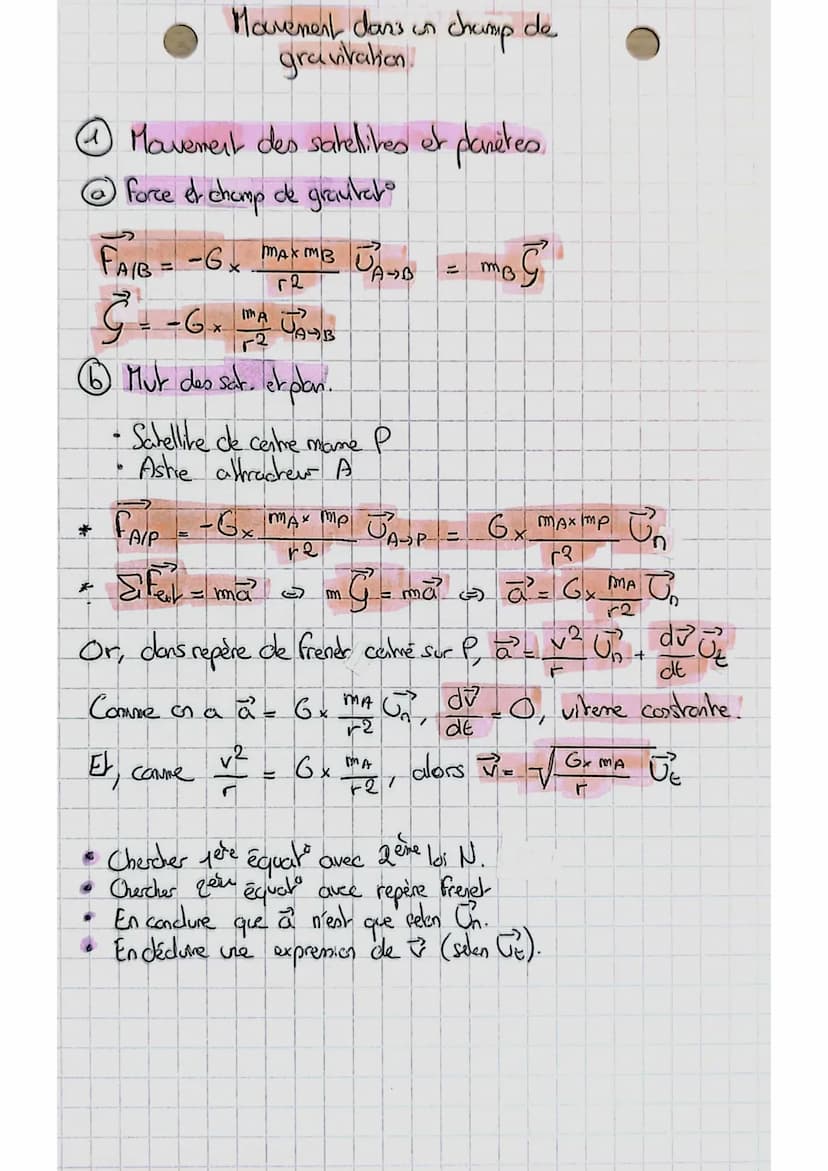 Mouvement dans un champ de
gravitation.
① Mouvement des satellites et planètes
ⓐ Force et champ de gravitat°
F⃗A/B = -G × mA × mB / r² U⃗A→B = mB G⃗
G⃗ = -G × mA / r² U⃗A→B
ⓑ Mvt des sat. et plan.
• Satellite de centre masse P
• Astre attracteur A
* F⃗A/P = -G × mA × mP / r² U⃗A→P = G × mA × mP / r² U⃗n
* ΣF⃗ext = ma⃗ ⇔ m G⃗ = ma⃗ ⇔ a⃗ = G × mA / r² U⃗n
Or, dans repère de Frenet centré sur P, a⃗ = v² / r U⃗n + dv⃗ / dt U⃗t
Comme on a a⃗ = G × mA / r² U⃗n, dv⃗ / dt = 0, vitesse constante.
Et, comme v² / r = G × mA / r², alors v⃗ = √(G × mA / r) U⃗t
• Chercher 1ère équat° avec 2ème loi N.
• Chercher 2ème équat° avec repère Frenet
• En conclure que a⃗ n'est que selon U⃗n.
• En déduire une expression de v⃗ (selon U⃗t).